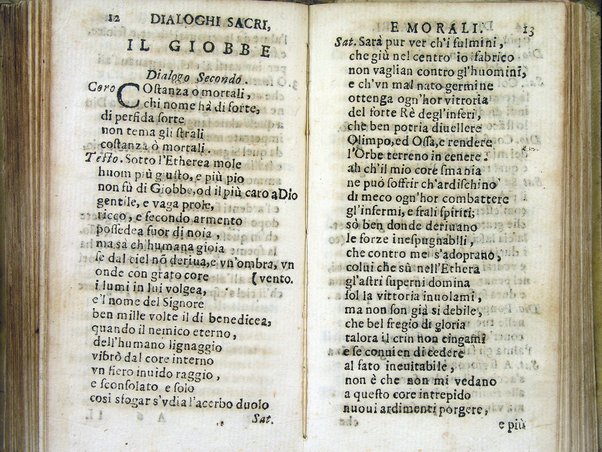 12 DIALOGHI SACRI,
IL GIOBBE
Dialogo Secondo.
Coro COstanza ò mortali,
chi nome hà di forte,
di perfida sorte
non tema gli strali
costanza ò mortali.
Testo. Sotto l'Etherea mole
huom più giusto, e più pio
non fù di Giobbe, od il più caro a Dio
gentile, e vaga prole,
ricco, e fecondo armento
possedea fuor di noia,
ma sa ch'humana gioia
se dal ciel nō deriua, e vn'ombra, vn
onde con grato core (vento.
i lumi in lui volgea,
e'l nome del Signore
ben mille volte il dì benedicea,
quando il nemico eterno,
dell'humano lignaggio
vibrò dal core interno
vn fiero inuido raggio,
e sconsolato e solo
così sfogar s'vdia l'acerbo duolo
Sat.
E MORALI. 13
Sat. Sarà pur ver ch'i fulmini,
che giù nel centro io fabrico
non vaglian contro gl'huomini,
e ch'vn mal nato germine
ottenga ogn'hor vittoria
del forte Rè degl'inferi,
che ben potria diuellere
Olimpo, ed Ossa, e rendere
l'Orbe terreno in cenere.
ah ch'il mio core smania
ne può soffrir ch'ardischino
di meco ogn'hor combattere
gl'infermi, e frali spiriti;
sò ben donde deriuano
le forze inespugnabili,
che contro me s'adoprano,
colui che sù nell'Ethera
gl'astri superni domina
sol la vittoria inuolami,
ma non son già sì debile,
che bel fregio di gloria
talora il crin non cingami
e se conuien di cedere
al fato ineuitabile,
non è che non mi vedano
a questo core intrepido
nuoui ardimenti porgere,
e più